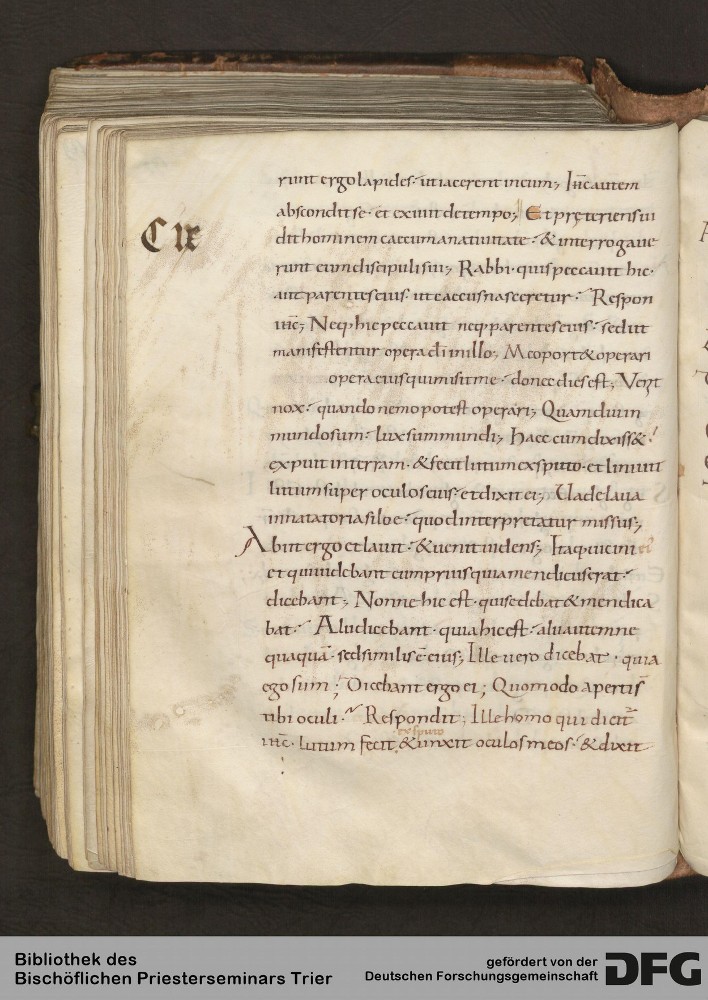 runt ergo lapides· ut iacerent in eum; Ihc autem
abscondit se· et exiuit de templo; Et pręteriens ui
C ix
dit hominem caecum a natiuitate· & interrogaue
runt eum discipuli sui; Rabbi· quis peccauit hic·
aut parentes eius· ut caecus nasceretur· Respon
ihc; Neq; hic peccauit neq; parentes eius· sed ut
manifestentur opera di in illo; Me oport& operari
opera eius qui misit me· donec dies est; Venit
nox· quando nemo potest operari; Quamdiu in
mundo sum· lux sum mundi; Haec cum dixiss&·
expuit in terram· & fecit lutum ex sputo· et liniuit
lutum super oculos eius· et dixit ei; Uade laua
in natatoria siloe· quod interpretatur missus;
Abiit ergo et lauit· & uenit uidens; Itaq; uicini ei
et qui uidebant eum prius quia mendicus erat·
dicebant; Nonne hic est· qui sedebat & mendica
bat· Alii dicebant· quia hic est· alii autem ne
quaquā· sed similis ē eius; Ille uero dicebat· quia
ego sum; Dicebant ergo ei; Quomodo aperti s̄
tibi oculi· Respondit; Ille homo qui dicit̄
ex sputo
ihc· lutum fecit, & unxit oculos meos· & dixit
Bibliothek des
Bischöflichen Priesterseminars Trier
gefördert von der
Deutschen Forschungsgemeinschaft
DFG